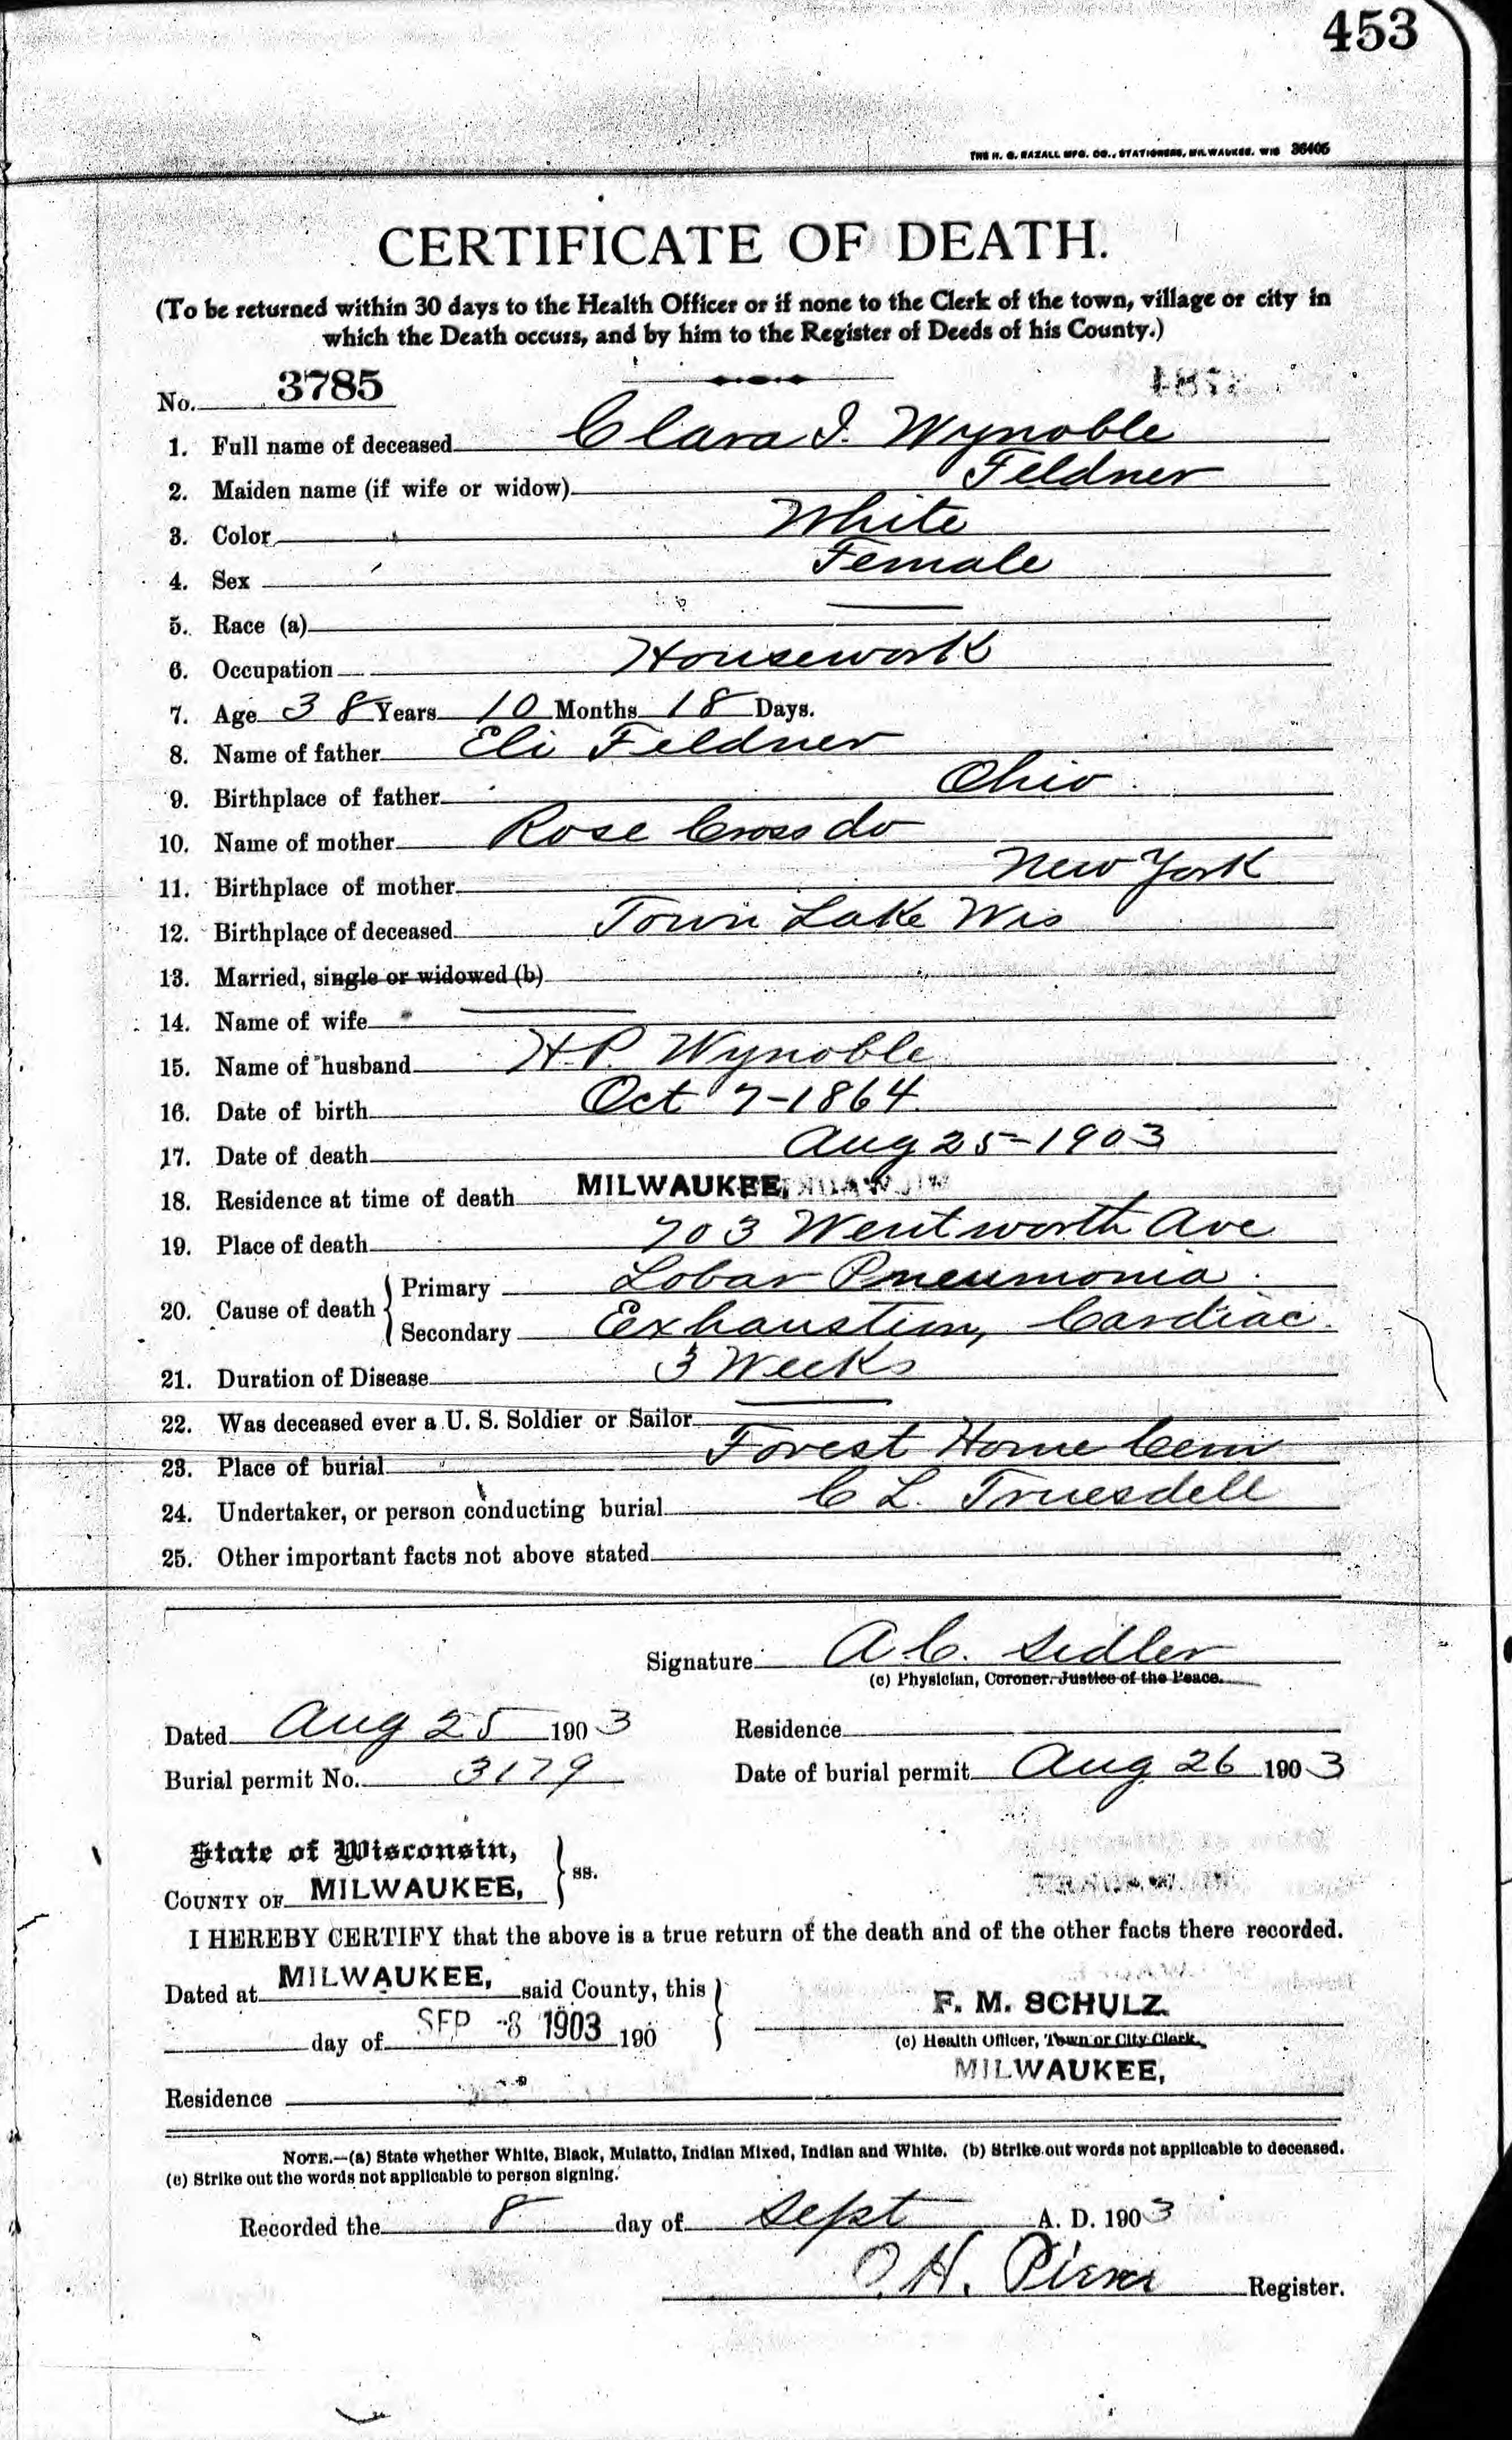 453
THE H. G. RAZALL MFG. CO., STATIONERS, MILWAUKEE, WIS 36405
CERTIFICATE OF DEATH.
(To be returned within 30 days to the Health Officer or if none to the Clerk of the town, village or city in
which the Death occurs, and by him to the Register of Deeds of his County.)
No. 3785
1. Full name of deceased Clara I. Wynoble
2. Maiden name (if wife or widow) Feldner
3. Color White
4. Sex Female
5. Race (a)
6. Occupation Housework
7. Age 38 Years 10 Months 18 Days.
8. Name of father Eli Feldner
9. Birthplace of father Ohio
10. Name of mother Rose Crossdo
11. Birthplace of mother New York
12. Birthplace of deceased Town Lake Wis
13. Married, single or widowed (b)
14. Name of wife
15. Name of husband H.P. Wynoble
16. Date of birth Oct 7-1864
17. Date of death Aug 25-1903
18. Residence at time of death MILWAUKEE,
19. Place of death 703 Wentworth Ave
20. Cause of death { Primary Lobar Pneumonia
Secondary Exhaustion, Cardiac.
21. Duration of Disease 3 Weeks
22. Was deceased ever a U. S. Soldier or Sailor
23. Place of burial Forest Home Cem
24. Undertaker, or person conducting burial C L. Truesdell
25. Other important facts not above stated
Signature A C. Sidler
(c) Physician, Coroner, Justice of the Peace.
Dated Aug 25 1903 Residence
Burial permit No. 3179 Date of burial permit Aug 26 1903
State of Wisconsin,
COUNTY OF MILWAUKEE, } ss.
I HEREBY CERTIFY that the above is a true return of the death and of the other facts there recorded.
Dated at MILWAUKEE, said County, this
day of SEP -8 1903 190
F. M. SCHULZ.
(c) Health Officer, Town or City Clerk.
MILWAUKEE,
Residence
NOTE.—(a) State whether White, Black, Mulatto, Indian Mixed, Indian and White. (b) Strike out words not applicable to deceased.
(c) Strike out the words not applicable to person signing.
Recorded the 8 day of Sept A. D. 1903
H. Register.